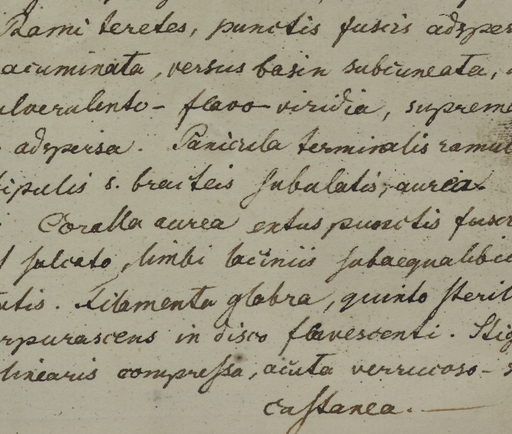 Rami teretes, punctis fuscis adsper
acuminata, versus basin subcuneata,
ulverulento- flavo-viridia, supreme
adspersa. Panicula terminalis ramul
tipulis s. bracteis subulatis, aurea.
Corolla aurea extus punctis fusci
l sulcato, limbi laciniis subaequalibu
atis. Filamenta glabra, quinto steril
rpurascens in disco flavescenti. Stig
linearis compressa, acuta verrucoso-
castanea.